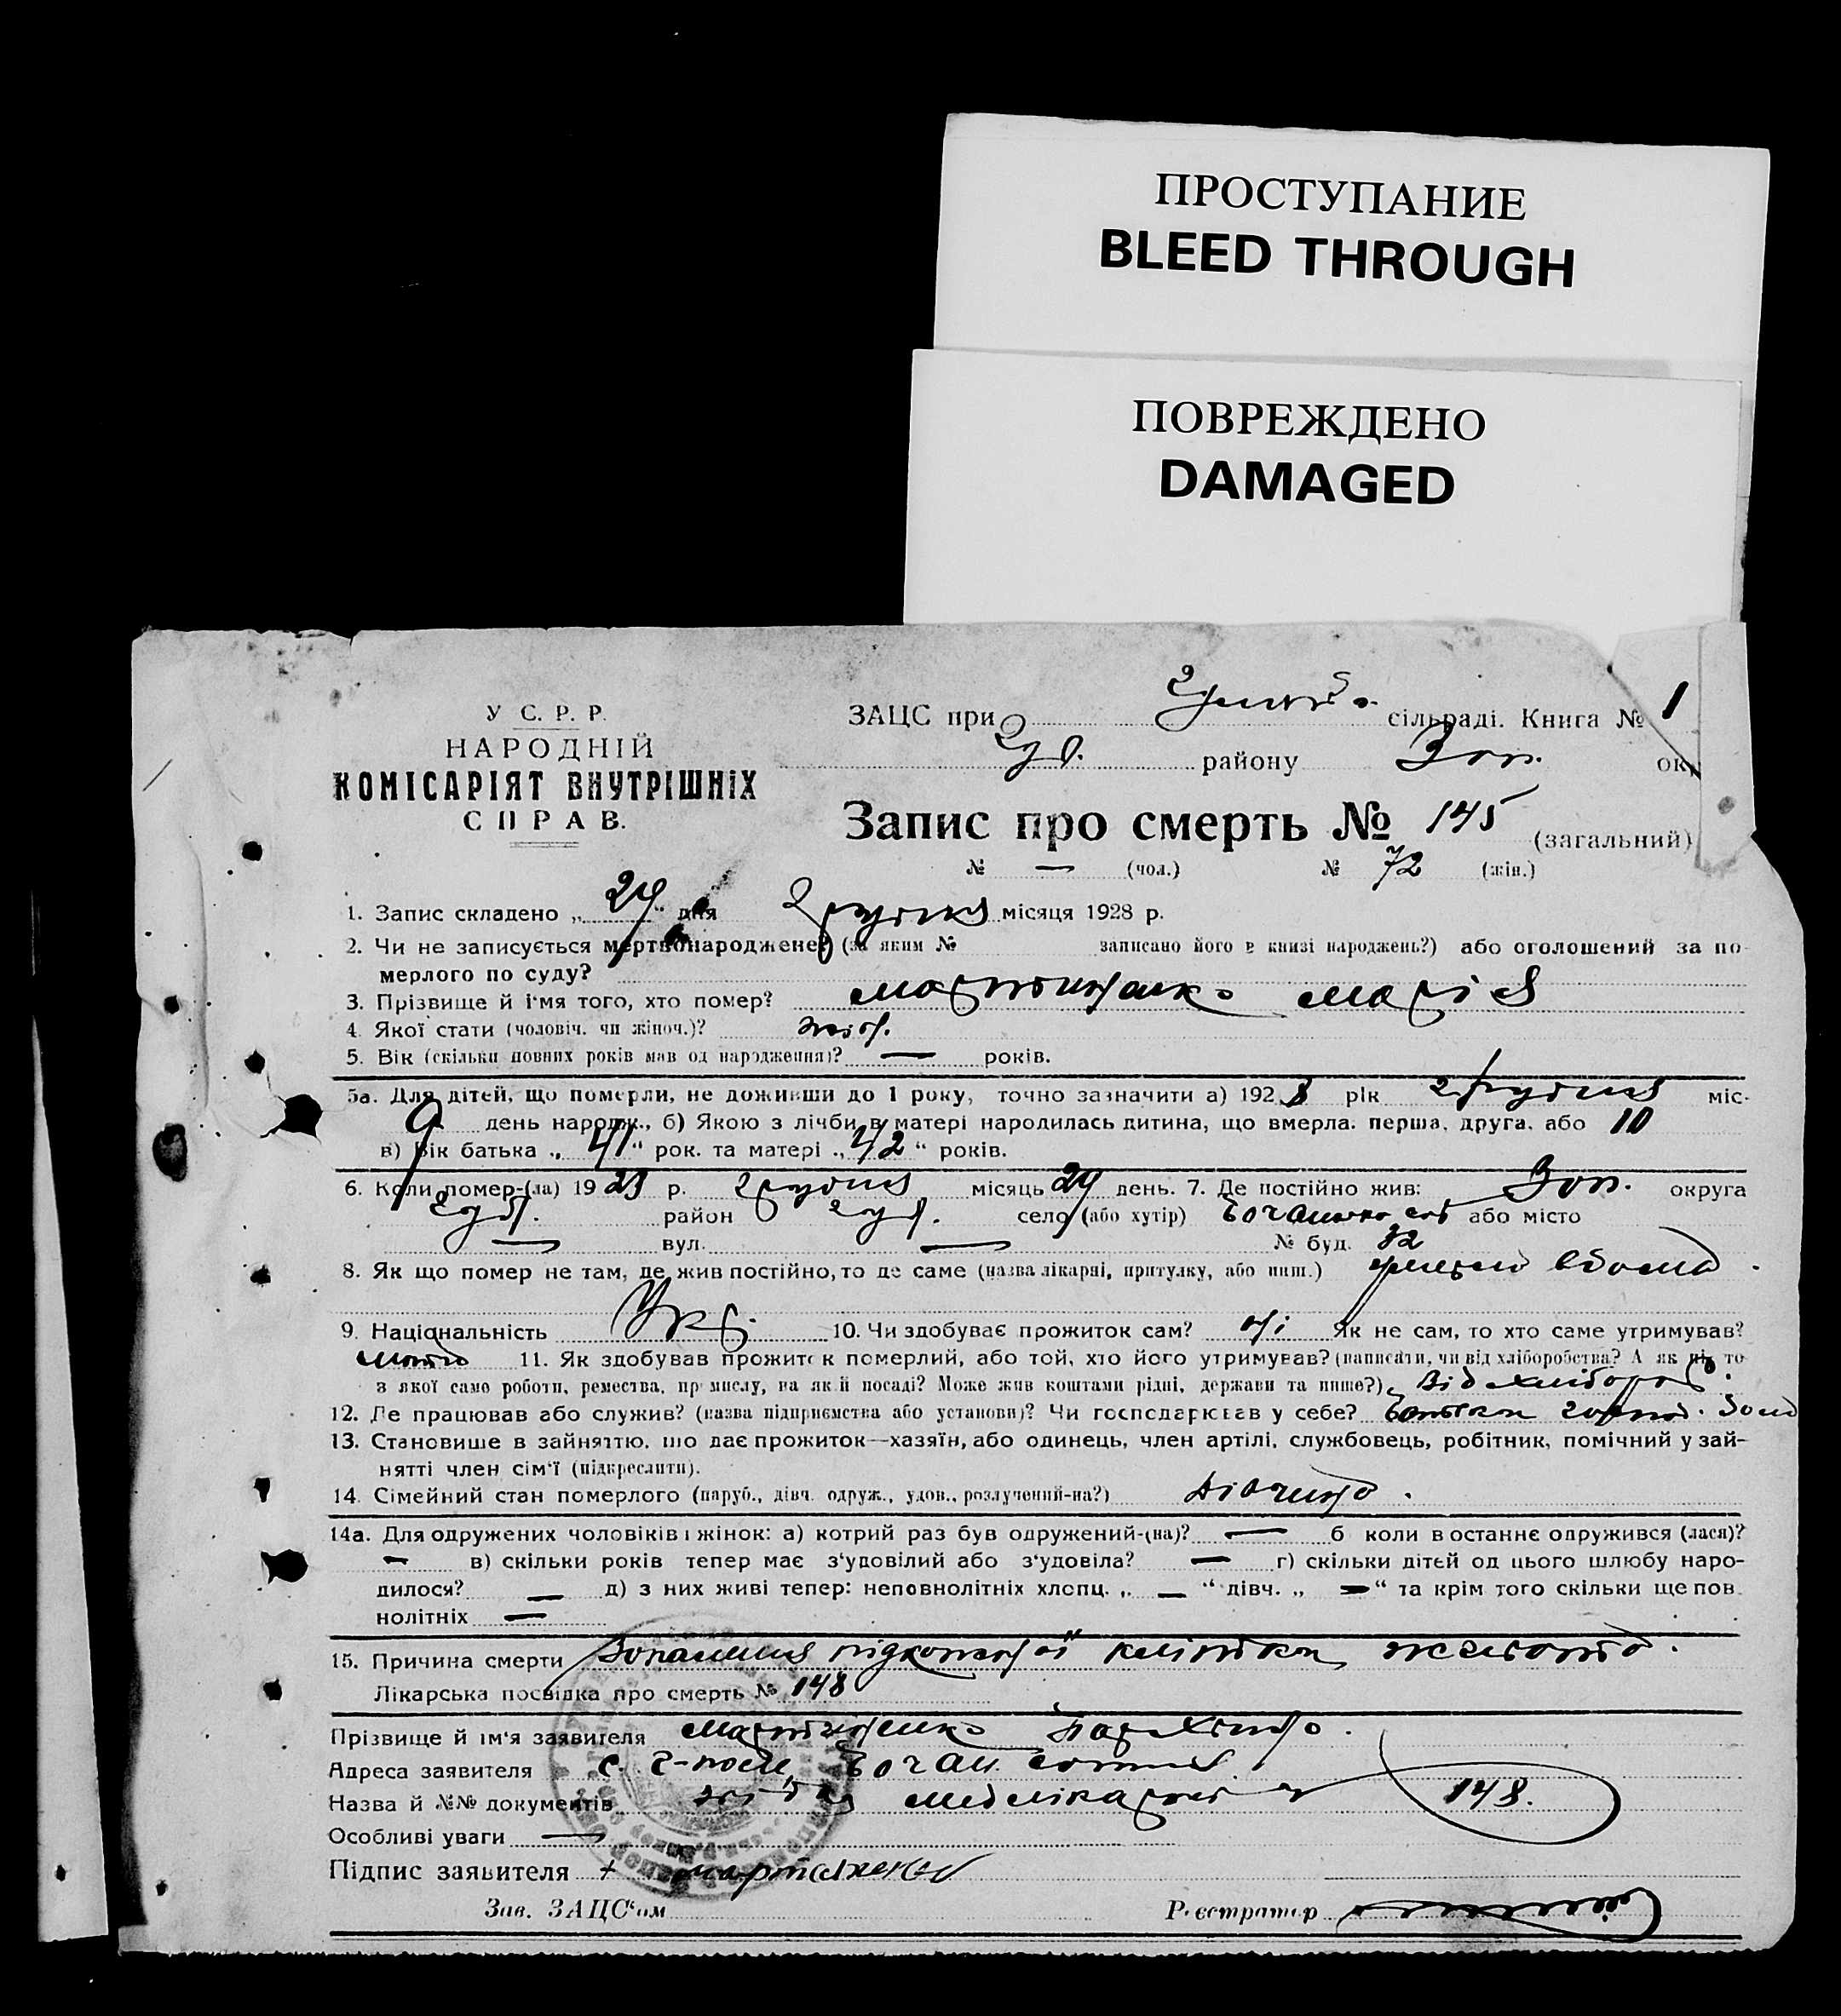 ПРОСТУПАНИЕ
BLEED THROUGH
ПОВРЕЖДЕНО
DAMAGED
У С. Р. Р.
НАРОДНІЙ
КОМІСАРІЯТ ВНУТРІШНІХ
СПРАВ.
ЗАЦС при сільраді. Книга № 1
району Зап. ок
Запис про смерть № 145 (загальний)
№ — (чол.) № 72 (жін.)
1. Запис складено „ 29 “ дня грудня місяця 1928 р.
2. Чи не записується мертвонароджене? (за яким № записано його в книзі народжень?) або оголошений за по-
мерлого по суду?
3. Прізвище й ім'я того, хто помер? Марія
4. Якої стати (чоловіч. чи жіноч.)? жін.
5. Вік (скільки повних років мав од народження)? — років.
5а. Для дітей, що померли, не доживши до 1 року, точно зазначити а) 1928 рік грудня міс-
9 день народж., б) Якою з лічби в матері народилась дитина, що вмерла. перша, друга, або 10
в) Вік батька „ 41 “ рок. та матері „ 42 “ років.
6. Коли помер-(ла) 1928 р. грудня місяць 29 день. 7. Де постійно жив: Зап. округа
район село (або хутір) або місто
— вул. — № буд. 32
8. Як що помер не там, де жив постійно, то де саме (назва лікарні, притулку, або инш.) вдома.
9. Національність Укр. 10. Чи здобуває прожиток сам? ні Як не сам, то хто саме утримував?
11. Як здобував прожиток померлий, або той, хто його утримував? (написати, чи від хліборобства? А як ні, то
з якої само роботи, ремества, промислу, на якій посаді? Може жив коштами рідні, держави та инше?) Від хлібороб.
12. Де працював або служив? (назва підприємства або установи)? Чи господарював у себе?
13. Становише в зайняттю, що дає прожиток—хазяїн, або одинець, член артілі, службовець, робітник, помічний у зай-
нятті член сім'ї (підкреслити).
14. Сімейний стан померлого (паруб., дівч. одруж., удов., розлучений-на?) дівчина.
14а. Для одружених чоловіків і жінок: а) котрий раз був одружений-(на)? — б коли в останнє одружився (лася)?
— в) скільки років тепер має з'удовілий або з'удовіла? — г) скільки дітей од цього шлюбу наро-
дилося? — д) з них живі тепер: неповнолітніх хлопц. „ — “ дівч. „ — “ та крім того скільки ще пов-
нолітніх —
15. Причина смерти Запалення підкожної клітки живота.
Лікарська посвідка про смерть № 148
Прізвище й ім'я заявителя
Адреса заявителя с. Г-поле,
Назва й №№ документів 148.
Особливі уваги —
Підпис заявителя +
Зав. ЗАЦС'ом
Реєстратор